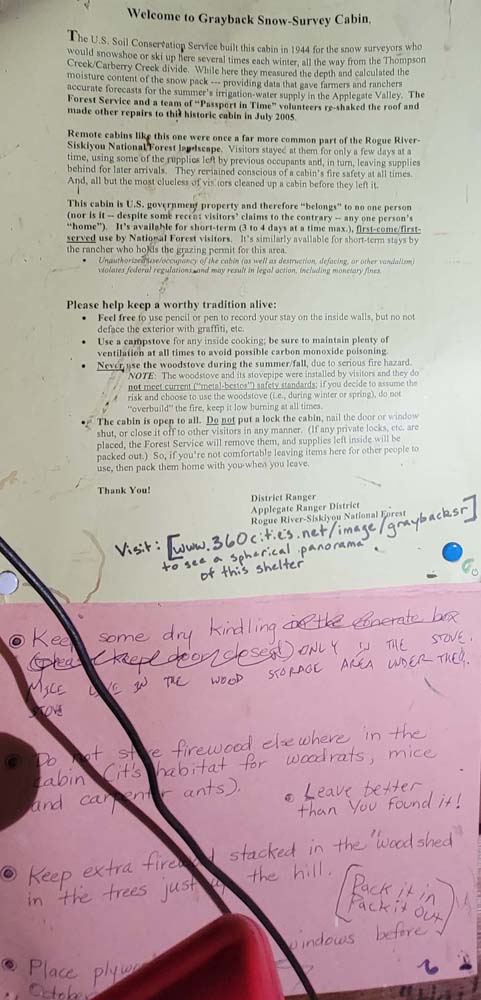 Welcome to Grayback Snow-Survey Cabin.
The U.S. Soil Conservation Service built this cabin in 1944 for the snow surveyors who
would snowshoe or ski up here several times each winter, all the way from the Thompson
Creek/Carberry Creek divide. While here they measured the depth and calculated the
moisture content of the snow pack --- providing data that gave farmers and ranchers
accurate forecasts for the summer's irrigation-water supply in the Applegate Valley. The
Forest Service and a team of "Passport in Time" volunteers re-shaked the roof and
made other repairs to this historic cabin in July 2005.
Remote cabins like this one were once a far more common part of the Rogue River-
Siskiyou National Forest landscape. Visitors stayed at them for only a few days at a
time, using some of the supplies left by previous occupants and, in turn, leaving supplies
behind for later arrivals. They remained conscious of a cabin's fire safety at all times.
And, all but the most clueless of visitors cleaned up a cabin before they left it.
This cabin is U.S. government property and therefore "belongs" to no one person
(nor is it -- despite some recent visitors' claims to the contrary -- any one person's
"home"). It's available for short-term (3 to 4 days at a time max.), first-come/first-
served use by National Forest visitors. It's similarly available for short-term stays by
the rancher who holds the grazing permit for this area.
• Unauthorized use/occupancy of the cabin (as well as destruction, defacing, or other vandalism)
violates federal regulations and may result in legal action, including monetary fines.
Please help keep a worthy tradition alive:
• Feel free to use pencil or pen to record your stay on the inside walls, but no not
deface the exterior with graffiti, etc.
• Use a campstove for any inside cooking; be sure to maintain plenty of
ventilation at all times to avoid possible carbon monoxide poisoning.
• Never use the woodstove during the summer/fall, due to serious fire hazard.
NOTE: The woodstove and its stovepipe were installed by visitors and they do
not meet current ("metal-bestos") safety standards; if you decide to assume the
risk and choose to use the woodstove (i.e., during winter or spring), do not
"overbuild" the fire, keep it low burning at all times.
• The cabin is open to all. Do not put a lock the cabin, nail the door or window
shut, or close it off to other visitors in any manner. (If any private locks, etc. are
placed, the Forest Service will remove them, and supplies left inside will be
packed out.) So, if you're not comfortable leaving items here for other people to
use, then pack them home with you when you leave.
Thank You!
District Ranger
Applegate Ranger District
Rogue River-Siskiyou National Forest
Visit: [www.360cities.net/image/graybacksr]
to see a spherical panorama
of this shelter
Keep some dry kindling in the box
(please keep door closed!) ONLY IN THE STOVE.
MICE LIVE IN THE WOOD STORAGE AREA UNDER THE
STOVE
Do not store firewood elsewhere in the
cabin (it's habitat for woodrats, mice
and carpenter ants).
• Leave better
than you found it!
Keep extra firewood stacked in the "woodshed"
in the trees just up the hill.
[Pack it in
Pack it out]
Place plyw
windows before
October